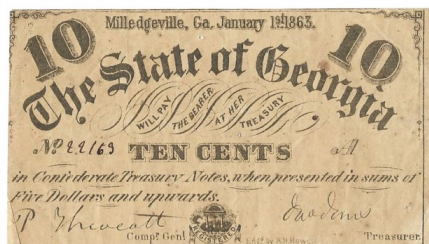 Milledgeville, Ga. January 1st 1863.
10 10
The State of Georgia
WILL PAY THE BEARER AT HER TREASURY
No. 22163 TEN CENTS A
in Confederate Treasury Notes, when presented in sums of
Five Dollars and upwards.
Compr. Genl. Treasurer.
REGISTERED